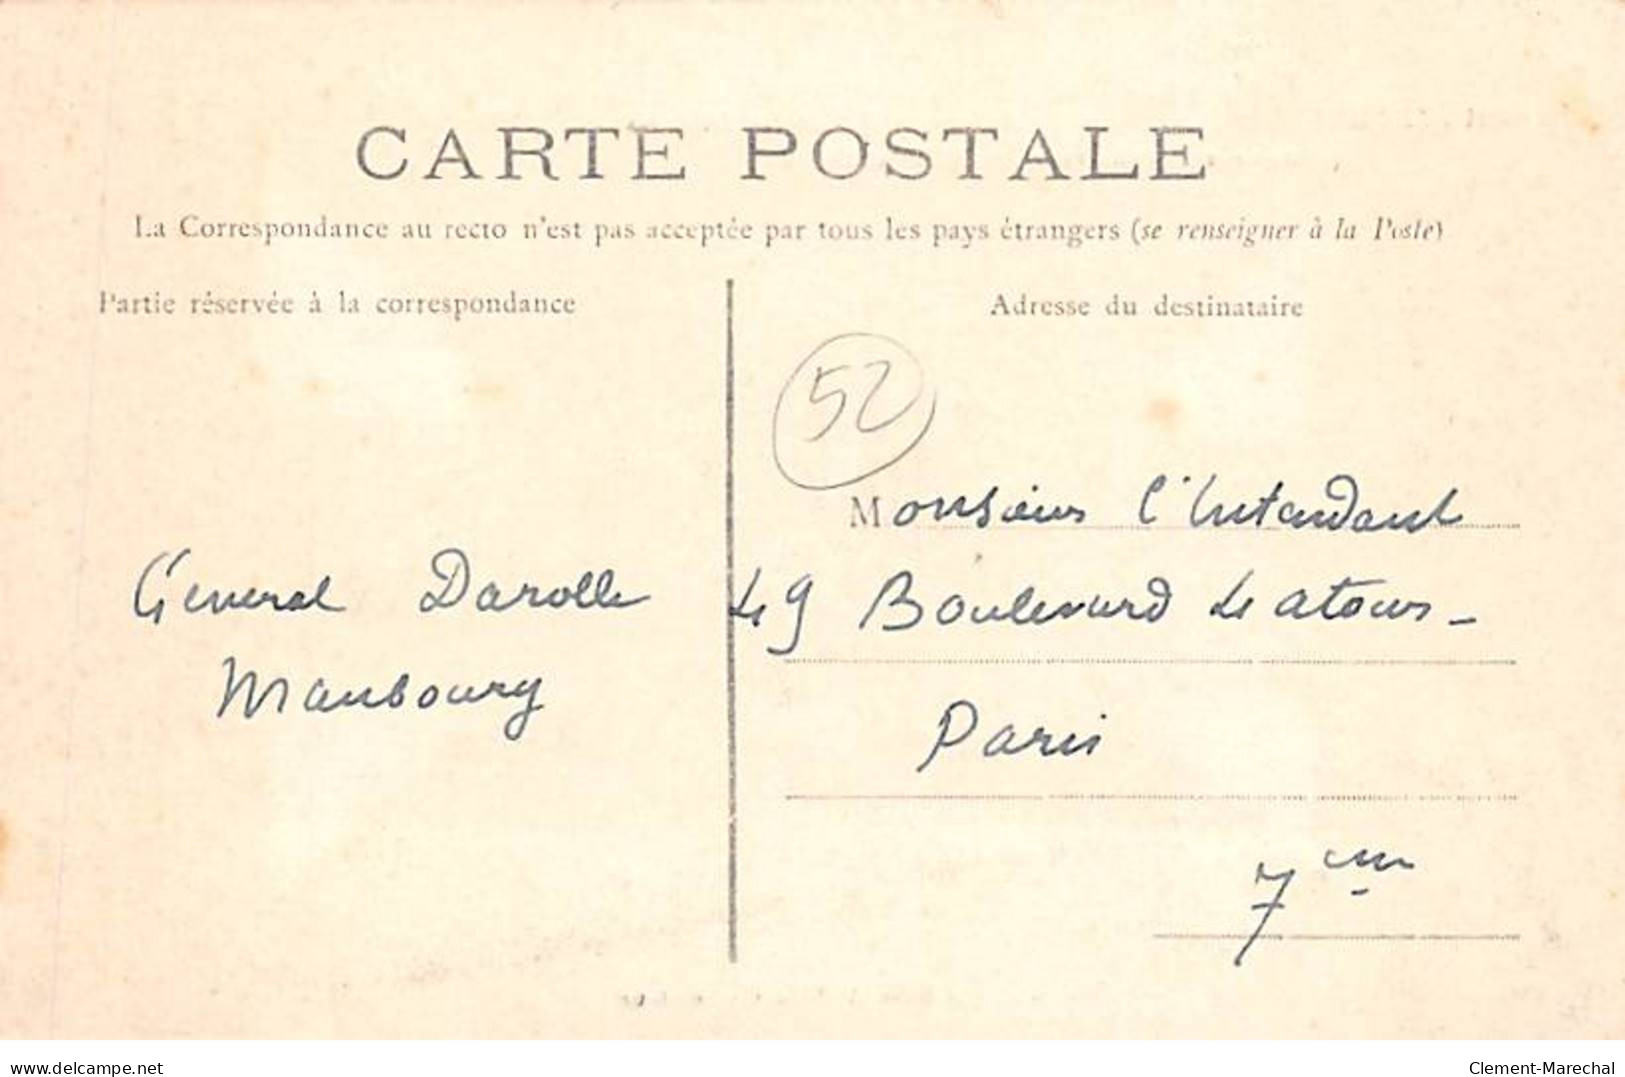 CARTE POSTALE
La Correspondance au recto n'est pas acceptée par tous les pays étrangers (se renseigner à la Poste)
Partie réservée à la correspondance
Adresse du destinataire
52
Monsieur l'Intendant
General Darolle
49 Boulevard Latour-
Maubourg
Paris
7em
www.delcampe.net
Clement-Marechal